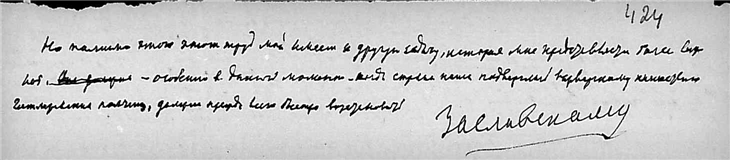 424
Но помимо этого этот труд мой имеет и другую задачу, которая мне представляется более важ
ной, – особенно в данный момент – когда страна наша подверглась варварскому нашествию
гитлеровских полчищ, должен прежде всего быть
Заславскому